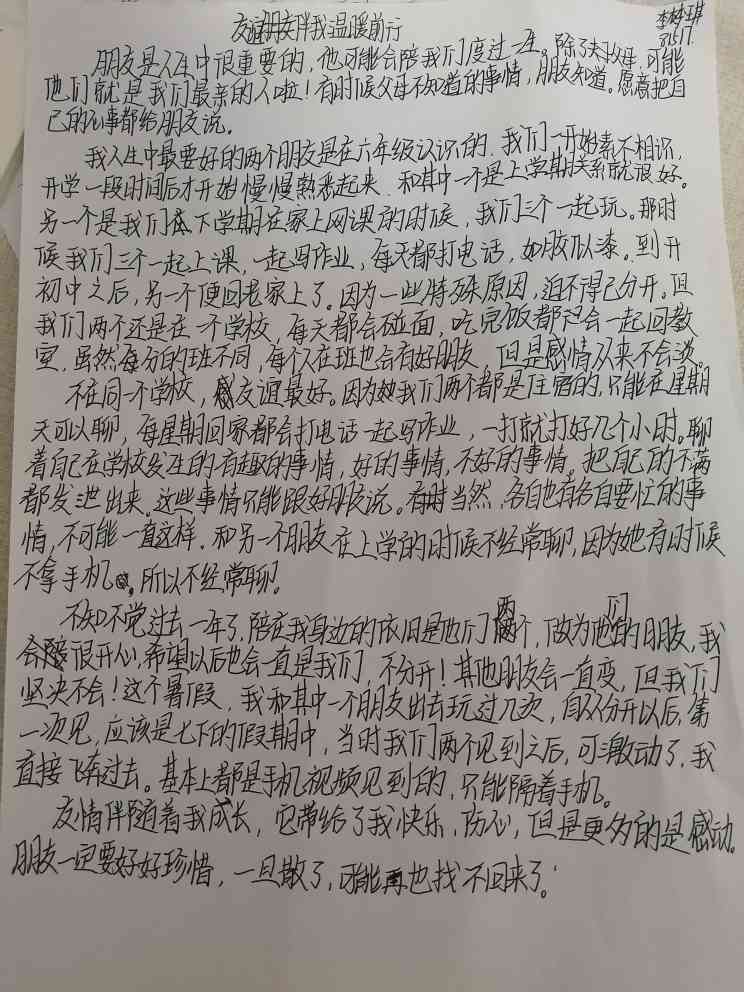 友谊朋友伴我温暖前行
李梦琪
31517
朋友是人生中很重要的,他可能会陪我们度过一生。除了父母,可能
他们就是我们最亲的人啦!有时候父母不知道的事情,朋友知道。愿意把自
己的心事都给朋友说。
我人生中最要好的两个朋友是在六年级认识的,我们一开始素不相识,
开学一段时间后才开始慢慢熟悉起来,和其中一个是上学期关系就很好。
另一个是我们在下学期在家上网课的时候,我们三个一起玩。那时
候我们三个一起上课,一起写作业,每天都打电话,如胶似漆。到开
初中之后,另一个便回老家上了。因为一些特殊原因,迫不得已分开。但
我们两个还是在一个学校,每天都会碰面,吃完饭都还会一起回教
室,虽然每分的班不同,每个人在班也会有好朋友,但是感情从来不会淡。
不在同一个学校,友谊最好。因为我们两个都是住宿的,只能在星期
天可以聊,每星期回家都会打电话一起写作业,一打就打好几个小时。聊
着自己在学校发生的有趣的事情,好的事情,不好的事情。把自己的不满
都发泄出来。这些事情只能跟好朋友说。有时当然,各自也有各自要忙的事
情,不可能一直这样。和另一个朋友在上学的时候不经常聊,因为她有时候
不拿手机。所以不经常聊。
不知不觉过去一年了,陪在我身边的依旧是他们两个,做为他们的朋友,我
会很开心,希望以后也会一直是我们,不分开!其他朋友会一直变,但我们
坚决不会!这个暑假,我和其中一个朋友出去玩过几次,自从分开以后,第
一次见,应该是七下的假期中,当时我们两个见到之后,可激动了,我
直接飞奔过去。基本上都是手机视频见到的,只能隔着手机。
友情伴随着我成长,它带给了我快乐,伤心,但是更多的是感动。
朋友一定要好好珍惜,一旦散了,可能再也找不回来了。